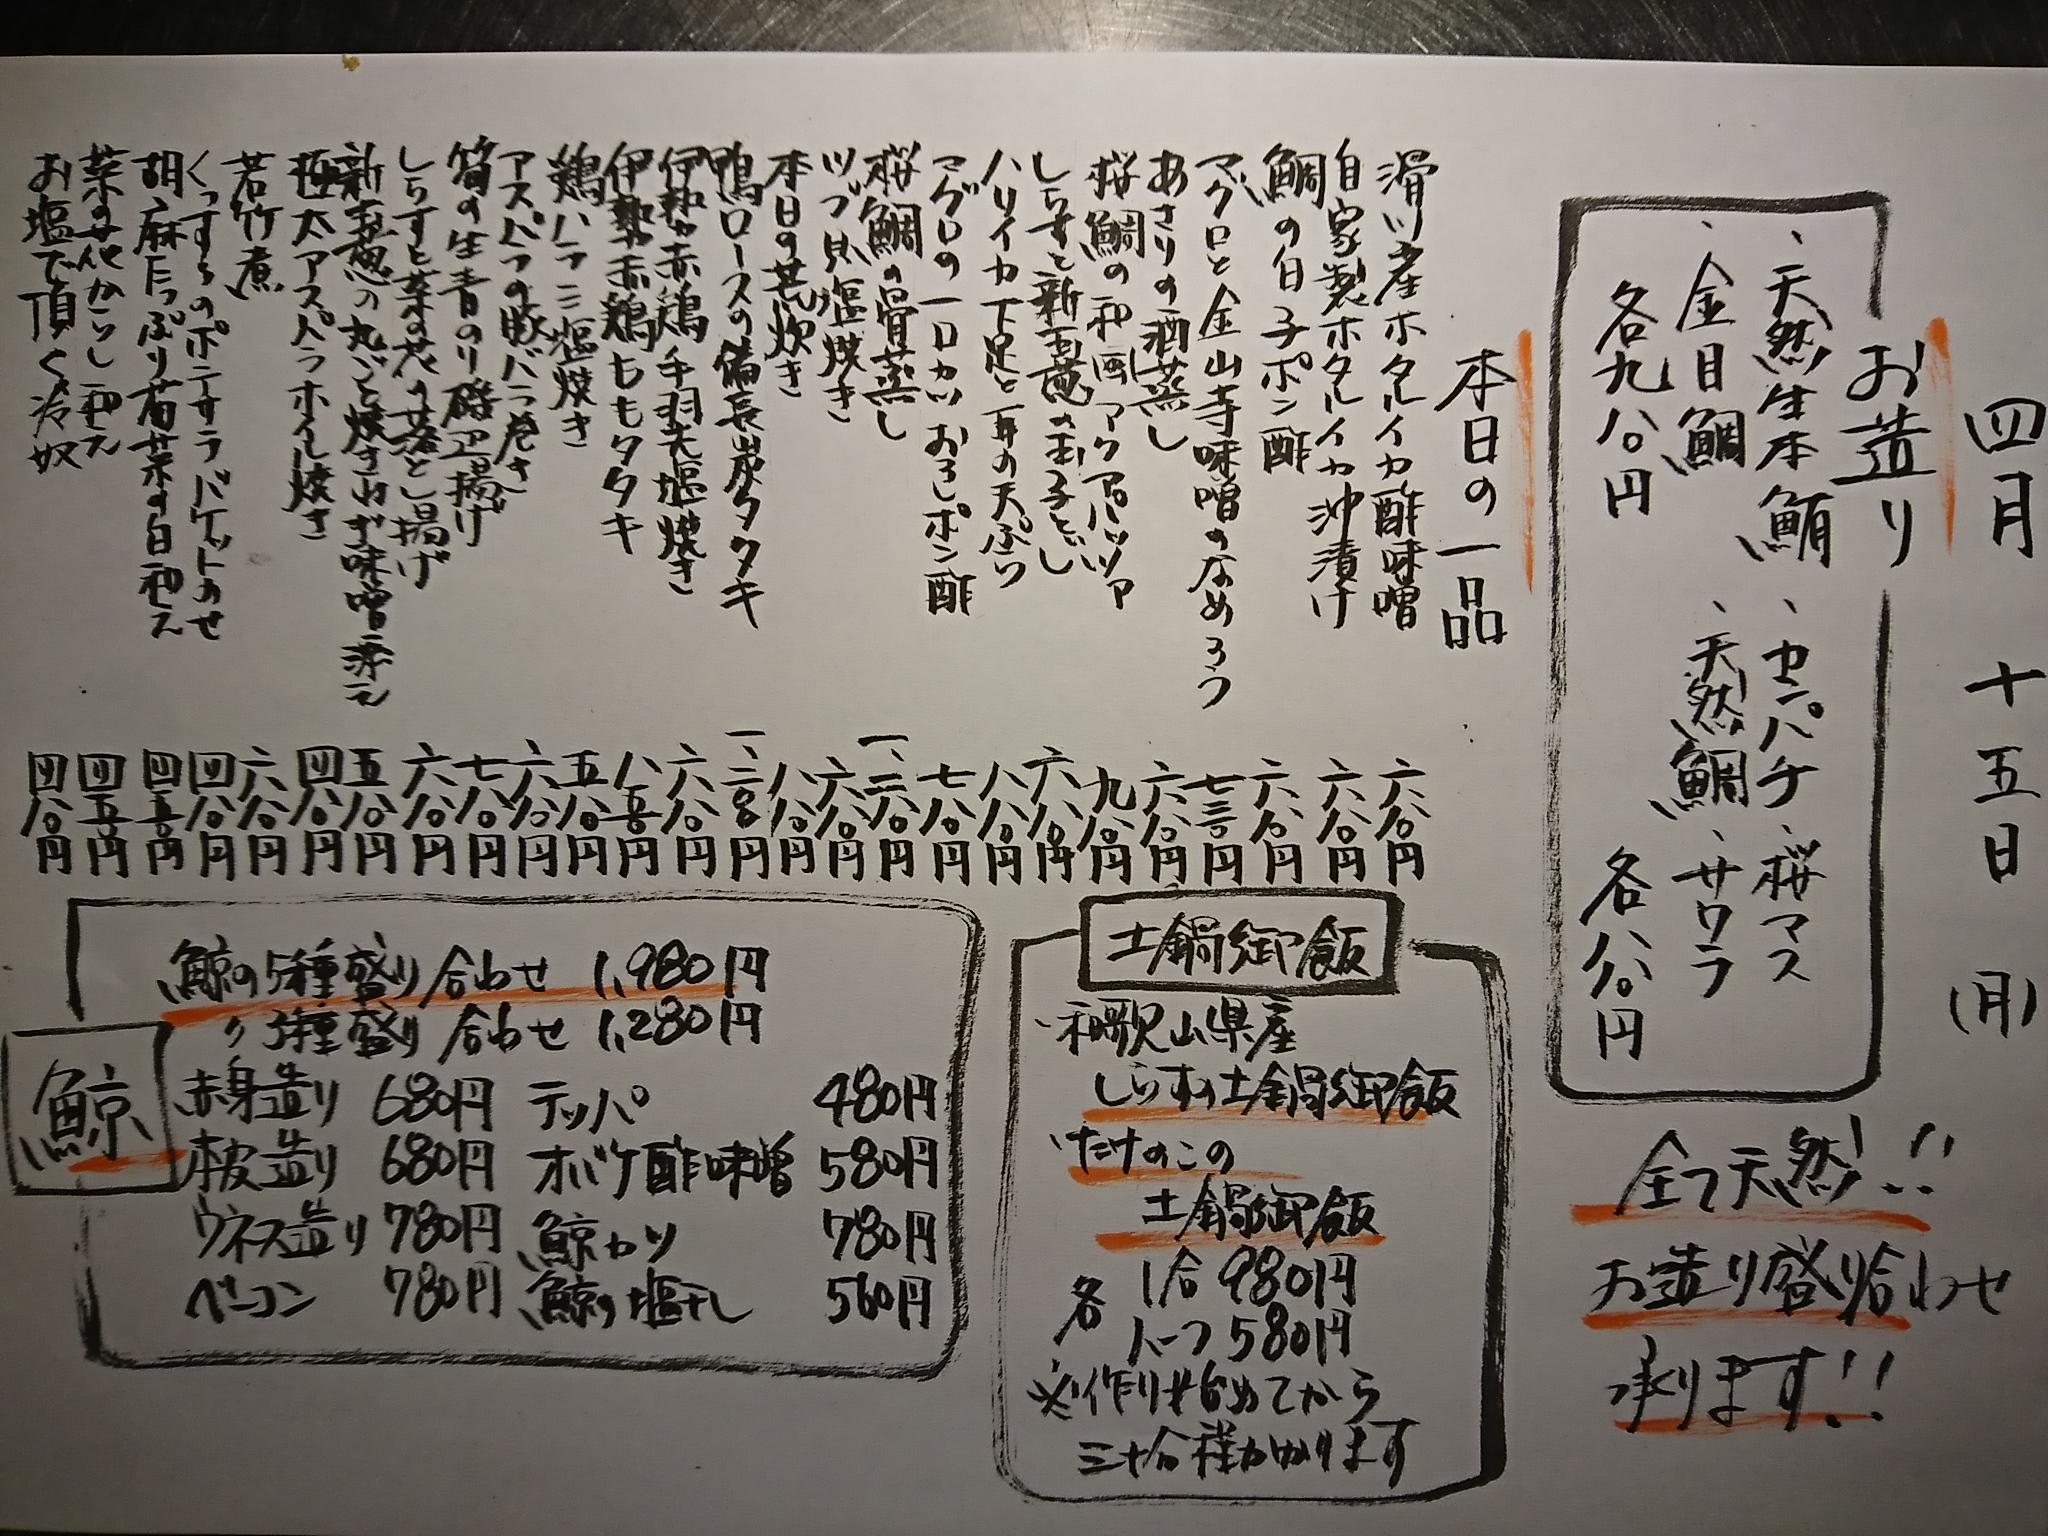 四月 十五日 (月)
お造り
、天然生本鮪 、センパチ 、桜マス
、金目鯛 、天然鯛 、サワラ
各九八〇円 各八八〇円
全て天然!!
お造り盛り合わせ
承ります!!
本日の一品
滑川産ホタルイカ酢味噌 六八〇円
自家製ホタルイカ沖漬け 六八〇円
鯛の白子ポン酢 六八〇円
マグロと金山寺味噌のなめろう 七三〇円
あさりの酒蒸し 六八〇円
桜鯛の和風アクアパッツア 九八〇円
しらすと新玉葱の玉子とじ 六八〇円
ハリイカ下足と耳の天ぷら 八八〇円
マグロの一口カツおろしポン酢 七八〇円
桜鯛の骨蒸し 一、二八〇円
ツブ貝塩焼き 六八〇円
本日の荒炊き 八八〇円
鴨ロースの備長炭タタキ 一、二〇〇円
伊勢赤鶏手羽先塩焼き 六八〇円
伊勢赤鶏ももタタキ 八五〇円
鶏ハラミ塩焼き 五八〇円
アスパラの豚バラ巻き 六八〇円
筍の生青のり磯辺揚げ 七八〇円
しらすと菜の花の落とし揚げ 六八〇円
新玉葱の丸ごと焼きねぎ味噌添え 五八〇円
極太アスパラホイル焼き 四八〇円
若竹煮 六八〇円
くんすうのポテサラバケットのせ 四八〇円
胡麻たっぷり菊菜の白和え 四五〇円
菜の花からし和え 四五〇円
お塩で頂く冷奴 四八〇円
土鍋御飯
・和歌山県産
しらすの土鍋御飯
・たけのこの
土鍋御飯
各 1合 980円
ハーフ 580円
※作り始めてから
三十分程かかります
鯨
鯨の5種盛り合わせ 1,980円
〃 3種盛り合わせ 1,280円
赤身造り 680円 テッパ 480円
本皮造り 680円 オバケ酢味噌 580円
ウネス造り 780円 鯨カツ 780円
ベーコン 780円 鯨の塩干し 560円